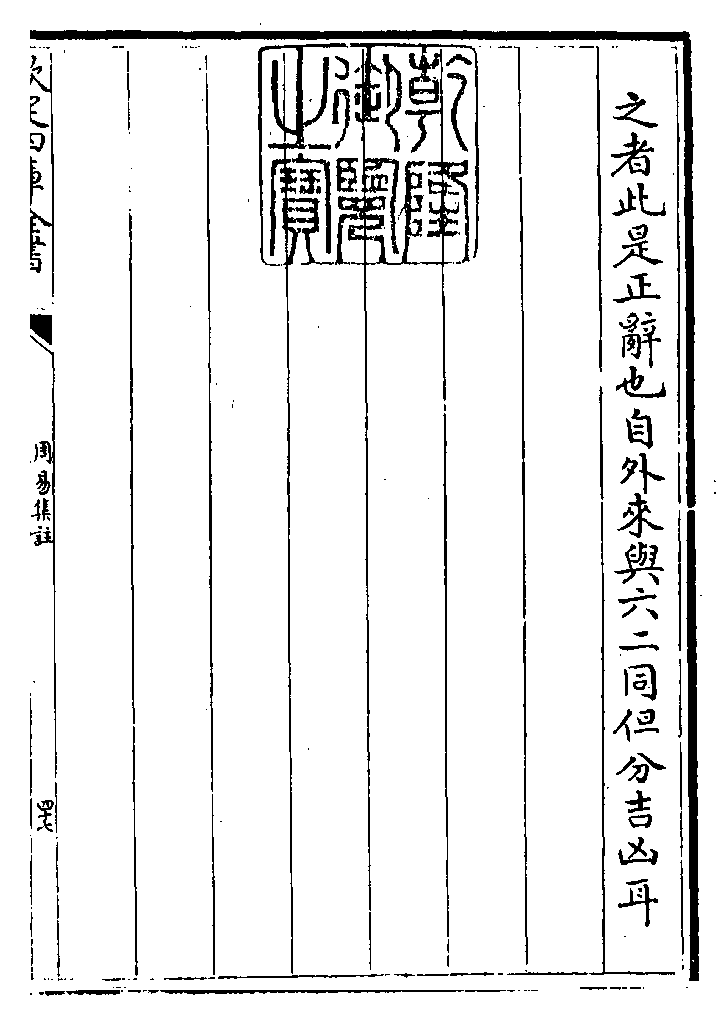 之者此是正辭也自外來與六二同但分吉凶耳
乾隆御覽之寶
欽定四庫全書
周易集註
四七